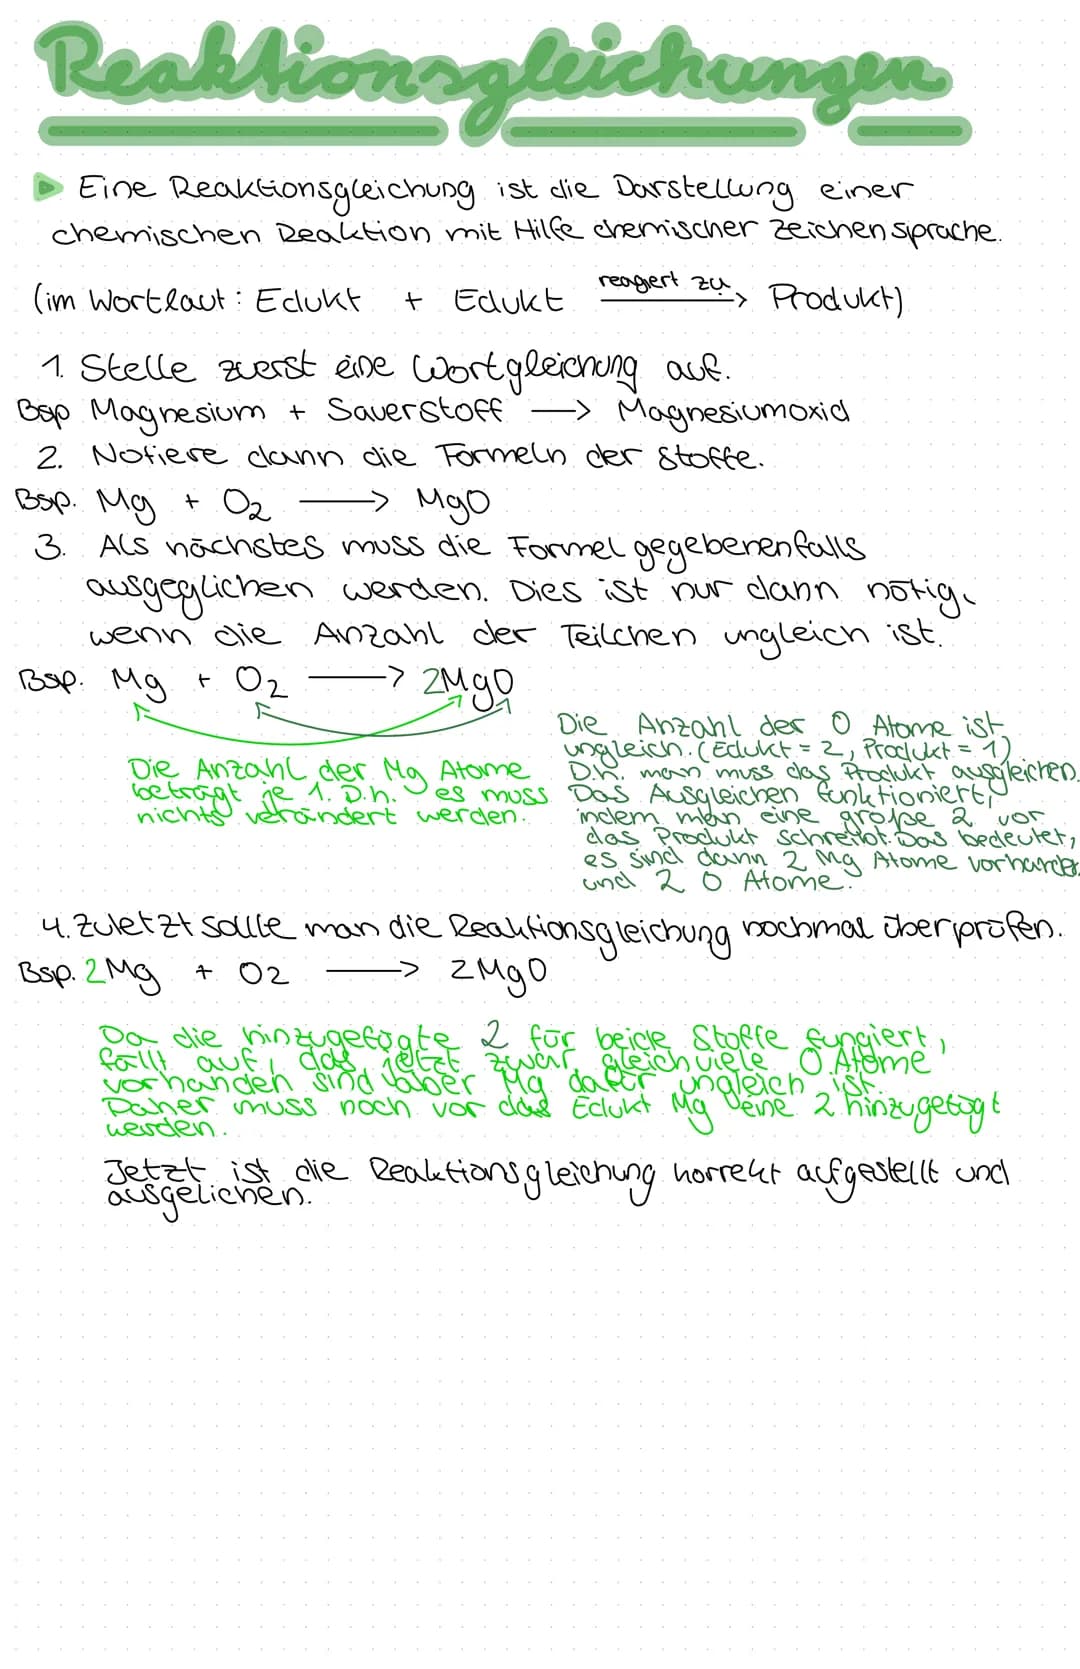 Reaktionsgleichungen
Eine Reaktionsgleichung ist die Darstellung einer
chemischen Reaktion mit Hilfe chemischer Zeichensprache.
(im Wortlaut: Edukt + Edukt reagert zu → Produkt)
1. Stelle zuerst eine Wortgleichung auf.
Bsp Magnesium + Sauerstoff → Magnesiumoxid
2. Notiere dann die Formeln der Stoffe.
Bsp. Mg + O2 → MgO
3. Als nächstes muss die Formel gegebenenfalls
ausgeglichen werden. Dies ist nur dann nötig,
wenn die Anzahl der Teilchen ungleich ist.
Bsp. Mg + O2 → 2MgO
Die Anzahl der Mg Atome
beträgt je 1. D.h. es muss
nichts verändert werden.
Die Anzahl der O Atome ist
ungleich. (Edukt = 2, Produkt = 1)
D.h. man muss das Produkt ausgleichen.
Das Ausgleichen funktioniert,
indem man eine große 2 vor
das Produkt schreibt. Das bedeutet,
es sind dann 2 Mg Atome vorhanden
und 2 O Atome.
4. Zuletzt sollte man die Reaktionsgleichung nochmal überprüfen.
Bsp. 2Mg + O2 → 2MgO
Da die hinzugefügte 2 für beide Stoffe fungiert,
fällt auf, das jetzt zwar gleich viele O Atome
vorhanden sind aber Mg dafür ungleich ist.
Daher muss noch vor das Edukt Mg eine 2 hinzugefügt
werden.
Jetzt ist die Reaktionsgleichung korrekt aufgestellt und
ausgelichen.